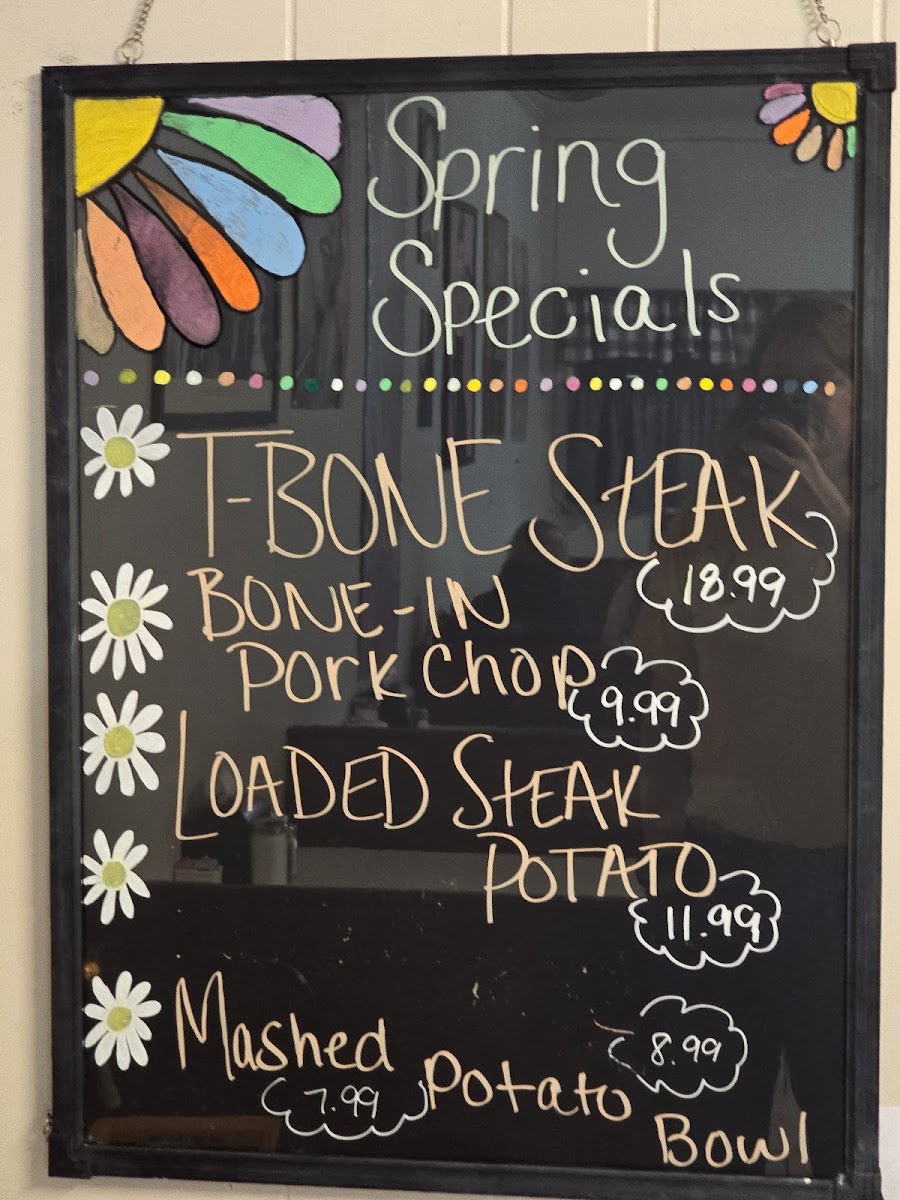 Spring
Specials
T-BONE STEAK
18.99
BONE-IN
Pork Chop
9.99
LOADED STEAK
POTATO
11.99
Mashed Potato Bowl
7.99
8.99